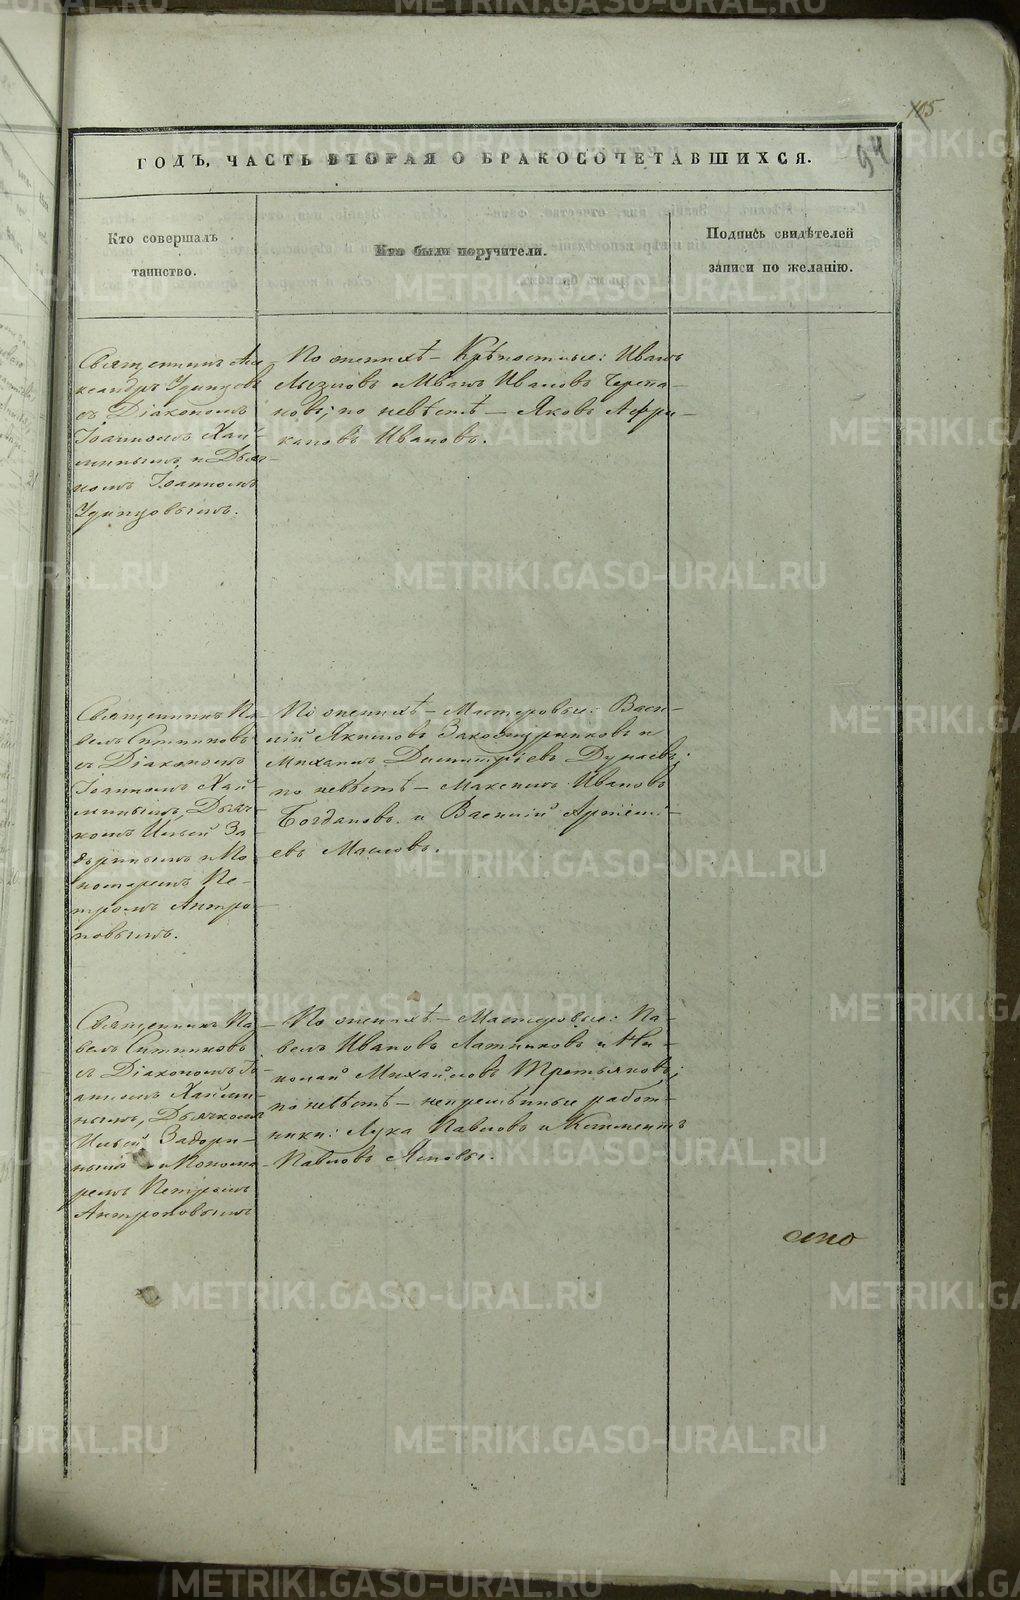 115.
94
ГОДЪ, ЧАСТЬ ВТОРАЯ О БРАКОСОЧЕТАВШИХСЯ.
Кто совершалъ
таинство.
Кто были поручители.
Подпись свидѣтелей
записи по желанію.
Священникъ Але-
ксандръ Удинцовъ
съ Діакономъ
Іоанномъ Хай-
минымъ и Дьяч-
комъ Іоанномъ
Удинцовымъ.
По женихѣ – Крѣпостные: Иванъ
и Иванъ Ивановъ Черепа-
новы; по невѣстѣ – Яковъ Афри-
кановъ Ивановъ.
Священникъ Па-
велъ Ситниковъ
съ Діакономъ
Іоанномъ Хай-
минымъ, Дьяч-
комъ Ильей За-
доринымъ и По-
номаремъ Пе-
тромъ Антро-
повымъ.
По женихѣ – Мастеровые: Васи-
лій Якимовъ и
Михаилъ Димитріевъ Дунаевъ;
по невѣстѣ – Максимъ Ивановъ
Богдановъ и Василій Артемі-
евъ Масловъ.
Священникъ Па-
велъ Ситниковъ
съ Діакономъ Іо-
анномъ Хайми-
нымъ, Дьячкомъ
Ильей Задори-
нымъ и Понома-
ремъ Петромъ
Антроповымъ
По женихѣ – Мастеровые: Па-
велъ Ивановъ Латниковъ и Ни-
колай Михайловъ Третьяковъ;
по невѣстѣ – непремѣнные работ-
ники: Лука Павловъ и Климентъ
Павловъ
METRIKI.GASO-URAL.RU